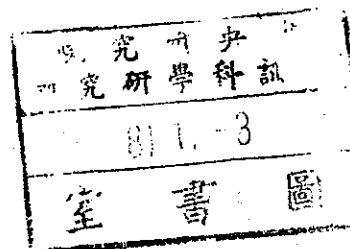 中央研究院
訊科學研究所
81 1. -3
圖書室